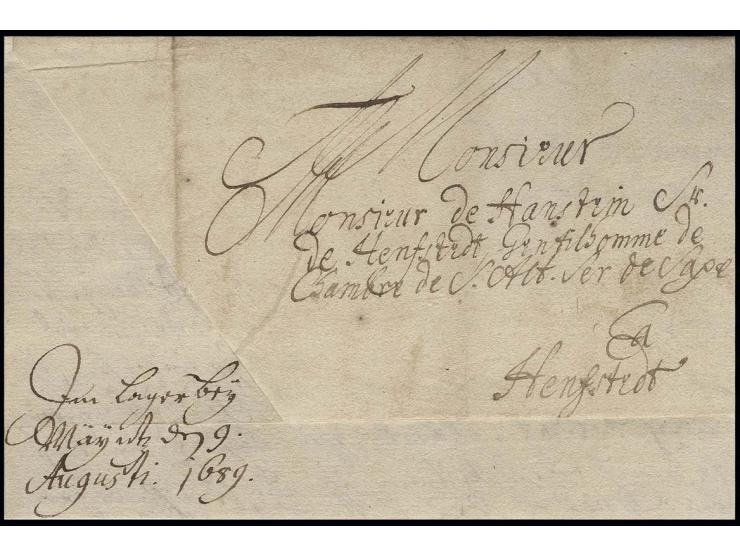 A Monsieur
Monsieur de Hanstein Sr.
de Henfstedt, Gentilhomme de
Chambre de S. Alt. Ser de Saxe
a
Henfstedt
Im Lager bey
Mäyntz den 9.
Augusti. 1689.